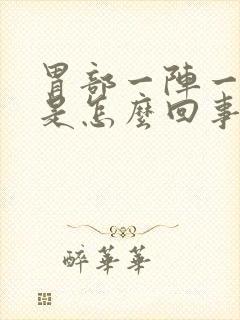 胃部一陣一
是怎麼回事
醉華華